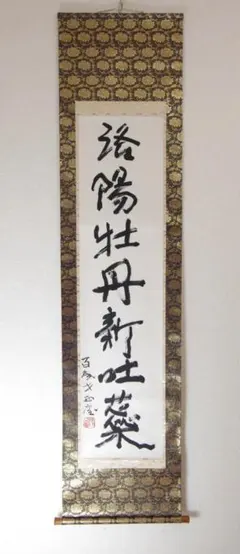 洛陽牡丹新吐蘂